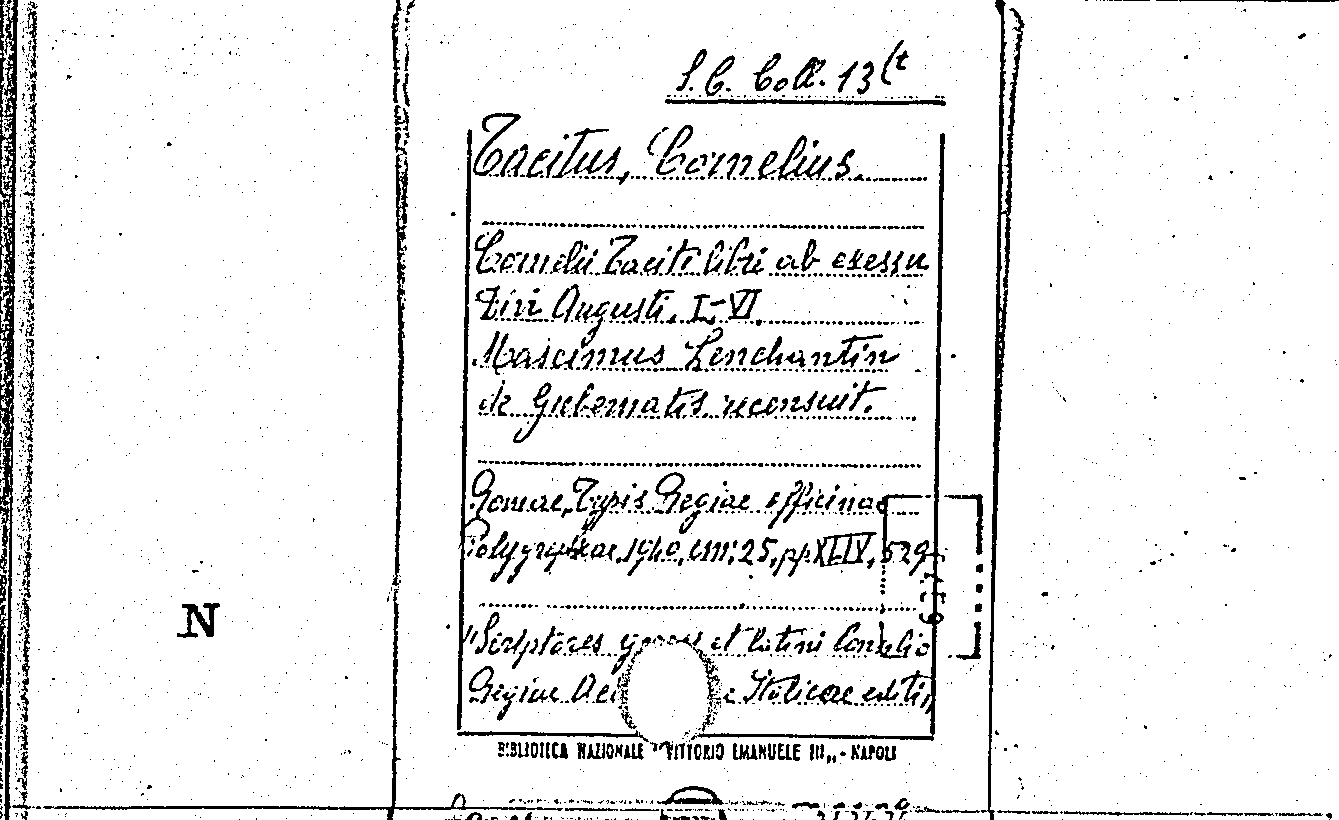 S.C. Coll. 13(t
Tacitus, Cornelius.
Cornelii Taciti libri ab exessu
Divi Augusti. I-VI.
Maximus Lenchantin
de Gubernatis recensuit.
Romae, Typis Regiae officinae
Polygraphicae, 1940, cm. 25, pp. XLIV, 529
N
"Scriptores graeci et latini Consilio
Regiae Italicae editi"
BIBLIOTECA NAZIONALE "VITTORIO EMANUELE III" - NAPOLI